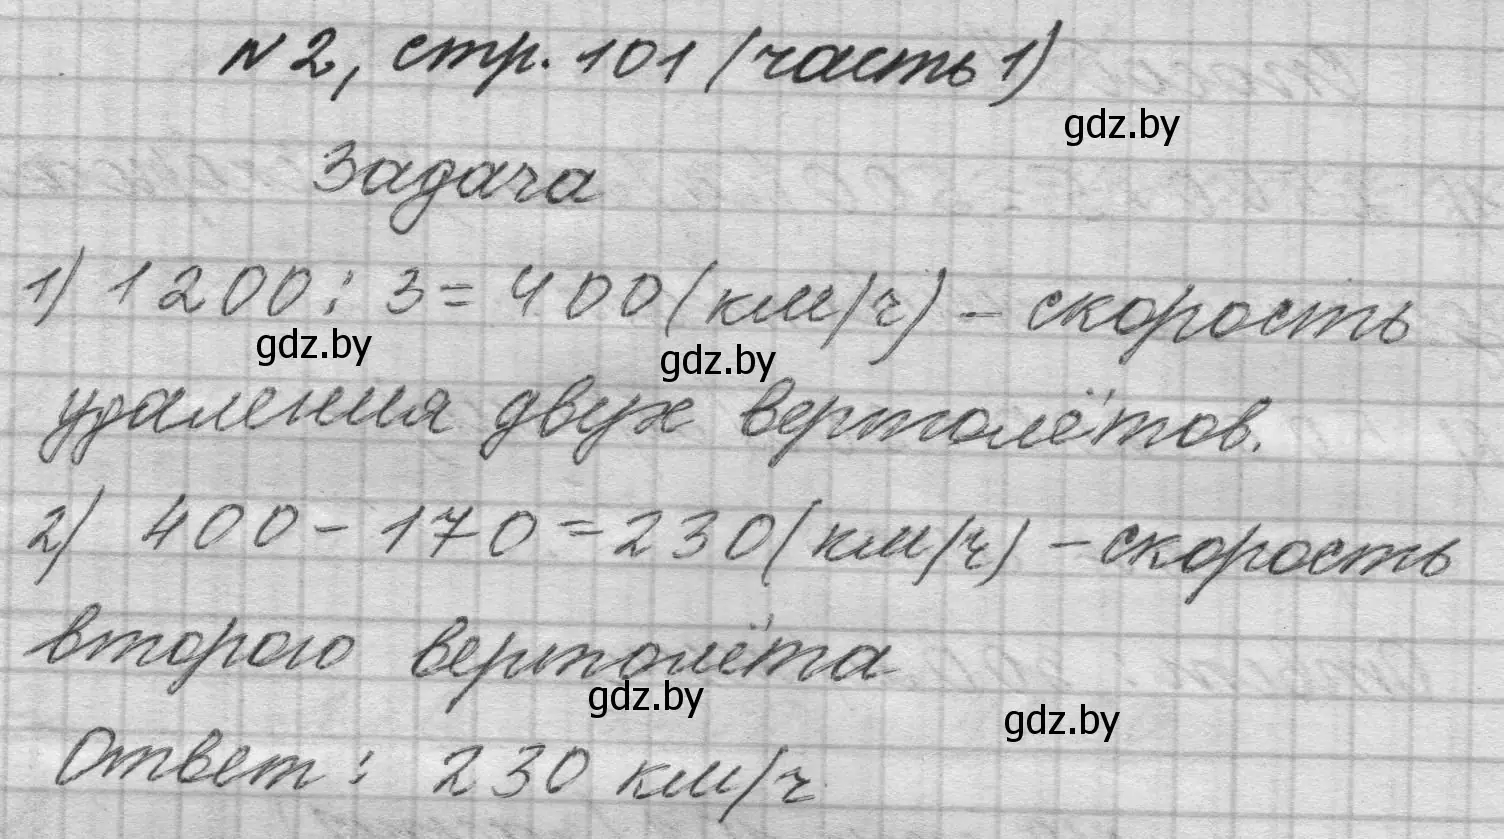 №2, стр. 101 (часть 1)
gdz.by
Задача
1) 1200 : 3 = 400 (км/ч) - скорость
gdz.by
gdz.by
удаления двух вертолётов.
2) 400 - 170 = 230 (км/ч) - скорость
второго вертолёта
gdz.by
gdz.by
Ответ: 230 км/ч